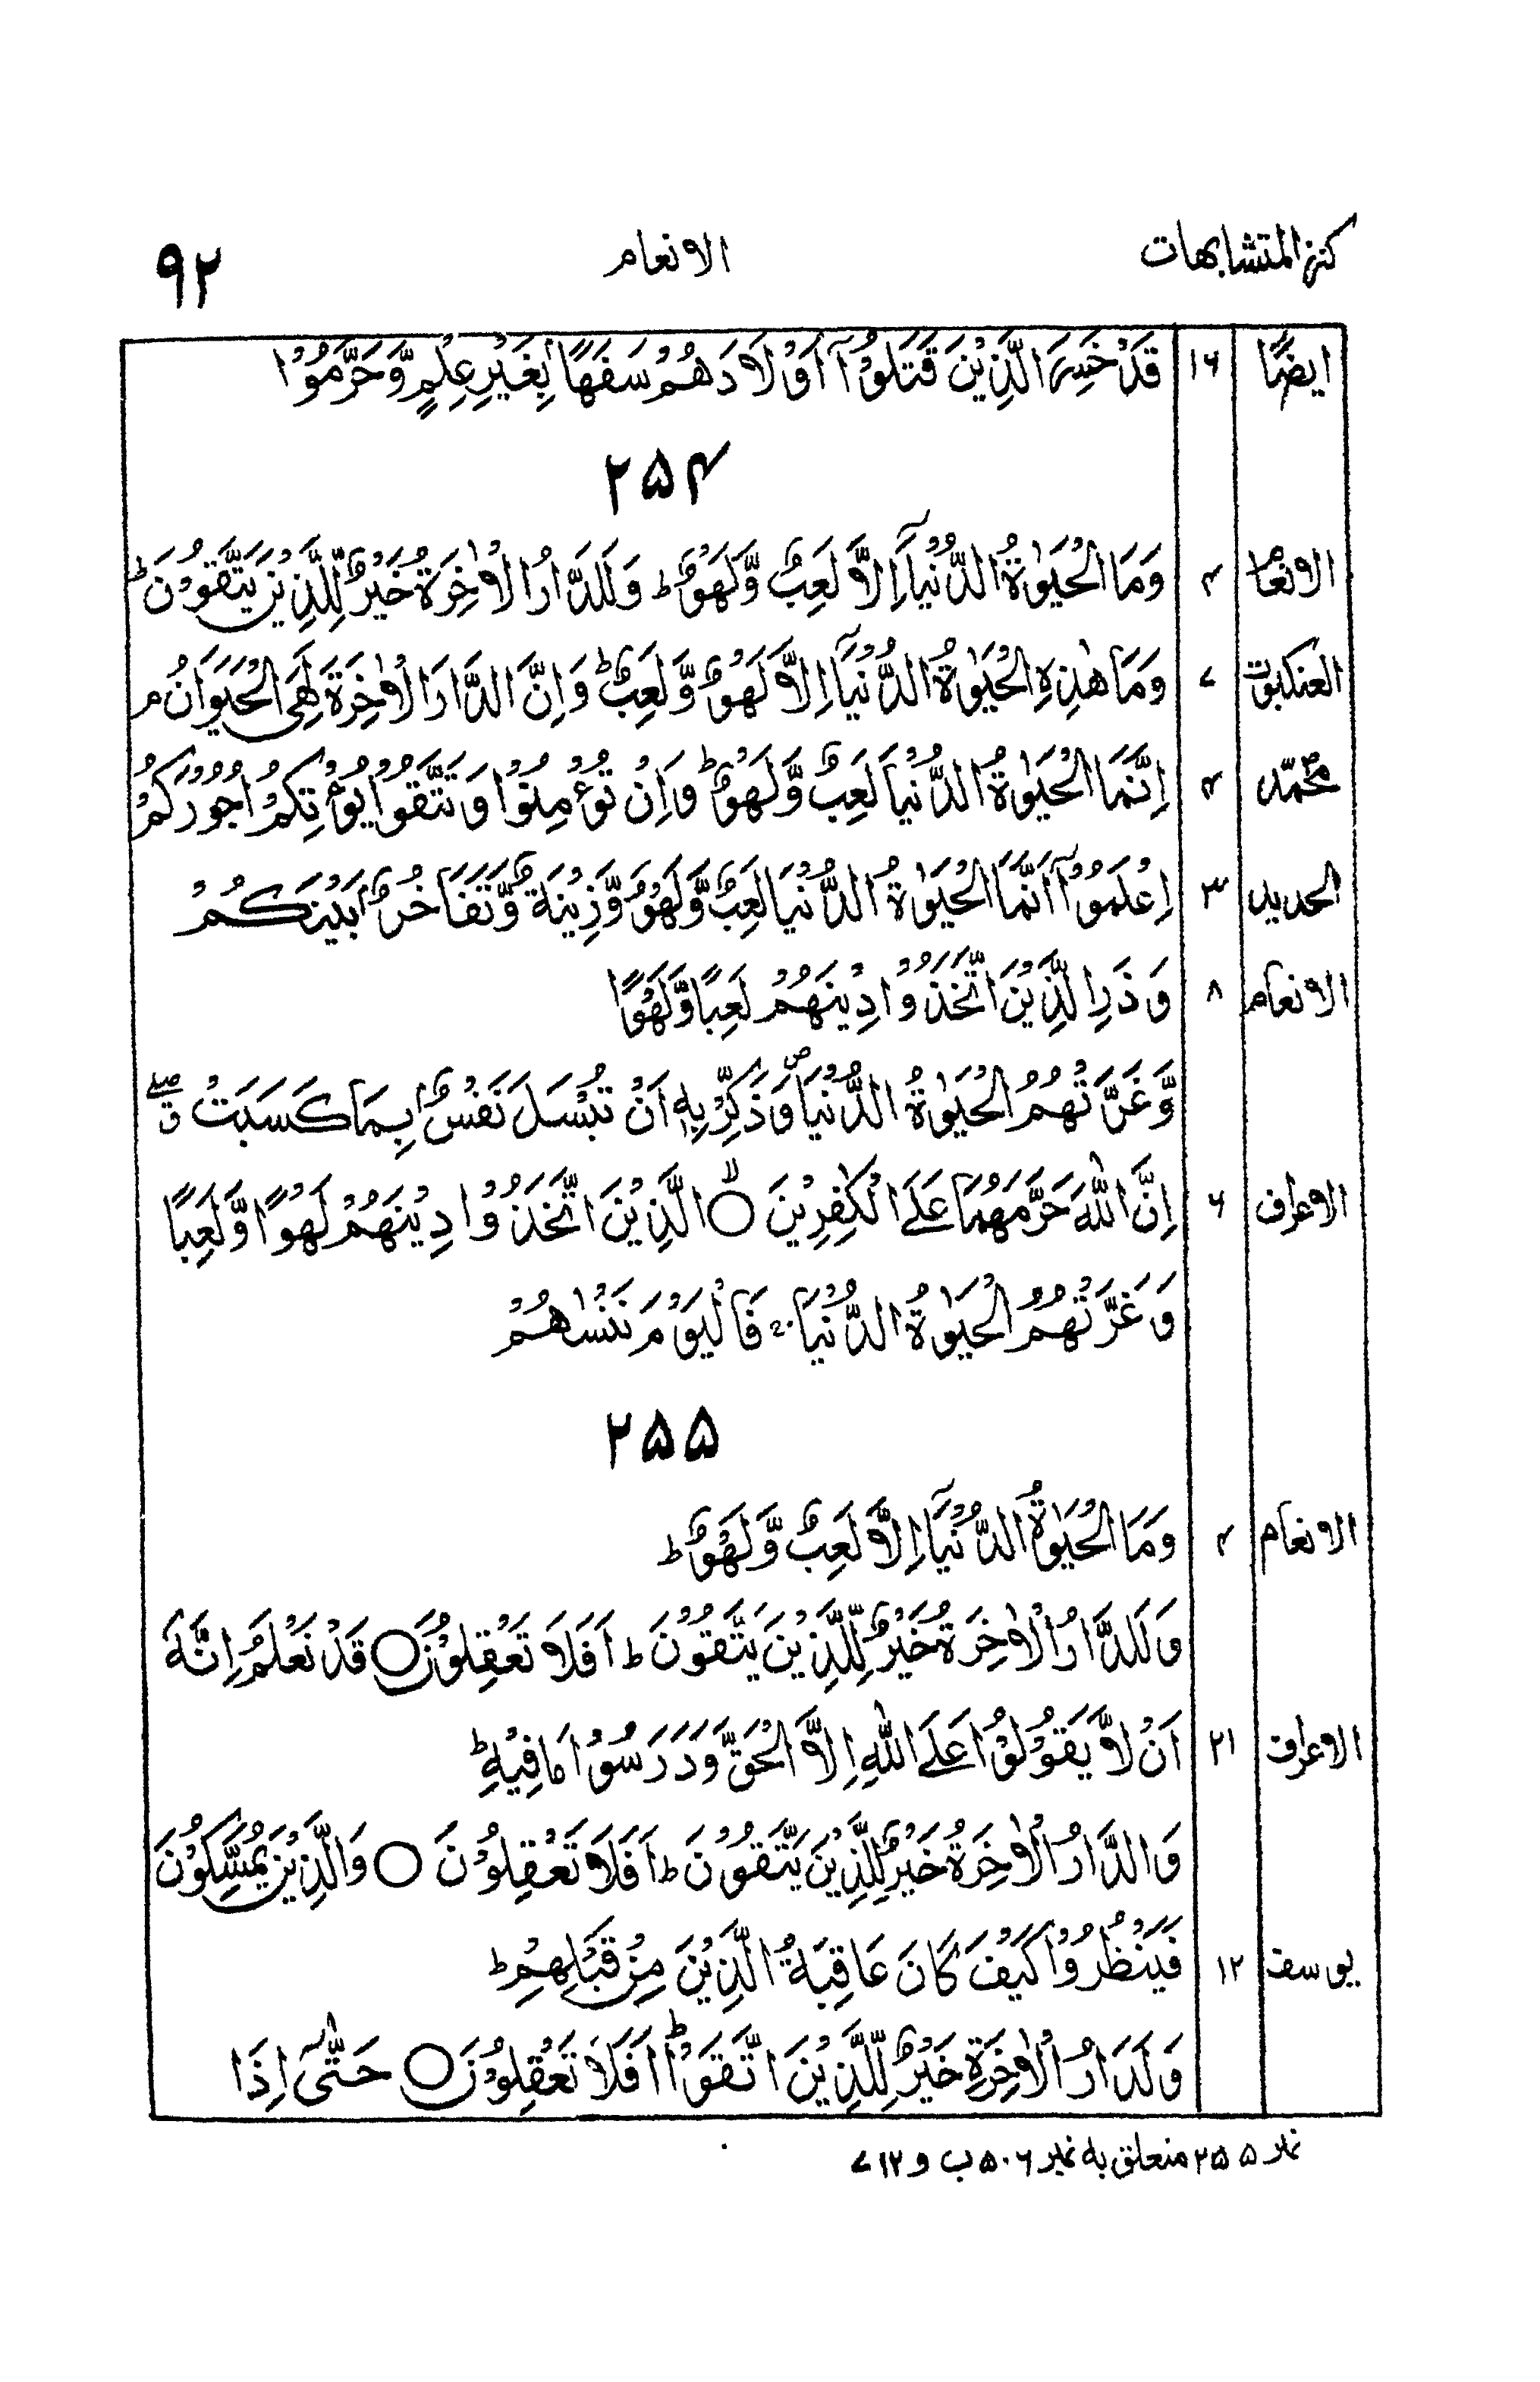 كنز المتشابهات الانعام ۹۲
ایضًا ۱۶ قَدْ خَسِرَ الَّذِيْنَ قَتَلُوْۤا اَوْلَادَهُمْ سَفَهًۢا بِغَيْرِ عِلْمٍ وَّحَرَّمُوْا
۲۵۴
الانعام ۴ وَمَا الْحَيٰوةُ الدُّنْيَاۤ اِلَّا لَعِبٌ وَّلَهْوٌ ؕ وَلَلدَّارُ الْاٰخِرَةُ خَيْرٌ لِّلَّذِيْنَ يَتَّقُوْنَ ؕ
العنكبوت ۷ وَمَا هٰذِهِ الْحَيٰوةُ الدُّنْيَاۤ اِلَّا لَهْوٌ وَّلَعِبٌ ؕ وَاِنَّ الدَّارَ الْاٰخِرَةَ لَهِيَ الْحَيَوَانُ م
محمّد ۴ اِنَّمَا الْحَيٰوةُ الدُّنْيَا لَعِبٌ وَّلَهْوٌ ؕ وَاِنْ تُؤْمِنُوْا وَتَتَّقُوْا يُؤْتِكُمْ اُجُوْرَكُمْ
الحديد ۳ اِعْلَمُوْۤا اَنَّمَا الْحَيٰوةُ الدُّنْيَا لَعِبٌ وَّلَهْوٌ وَّزِيْنَةٌ وَّتَفَاخُرٌۢ بَيْنَكُمْ
الانعام ۸ وَذَرِ الَّذِيْنَ اتَّخَذُوْا دِيْنَهُمْ لَعِبًا وَّلَهْوًا
وَّغَرَّتْهُمُ الْحَيٰوةُ الدُّنْيَا ۖ وَذَكِّرْ بِهٖۤ اَنْ تُبْسَلَ نَفْسٌۢ بِمَا كَسَبَتْ ۗ
الاعراف ۶ اِنَّ اللّٰهَ حَرَّمَهُمَا عَلَى الْكٰفِرِيْنَ ۙ○ الَّذِيْنَ اتَّخَذُوْا دِيْنَهُمْ لَهْوًا وَّلَعِبًا
وَغَرَّتْهُمُ الْحَيٰوةُ الدُّنْيَا ۚ فَالْيَوْمَ نَنْسٰهُمْ
۲۵۵
الانعام ۴ وَمَا الْحَيٰوةُ الدُّنْيَاۤ اِلَّا لَعِبٌ وَّلَهْوٌ ؕ
وَلَلدَّارُ الْاٰخِرَةُ خَيْرٌ لِّلَّذِيْنَ يَتَّقُوْنَ ؕ اَفَلَا تَعْقِلُوْنَ ○ قَدْ نَعْلَمُ اِنَّهٗ
الاعراف ۲۱ اَنْ لَّا يَقُوْلُوْا عَلَى اللّٰهِ اِلَّا الْحَقَّ وَدَرَسُوْا مَا فِيْهِ ؕ
وَالدَّارُ الْاٰخِرَةُ خَيْرٌ لِّلَّذِيْنَ يَتَّقُوْنَ ؕ اَفَلَا تَعْقِلُوْنَ ○ وَالَّذِيْنَ يُمَسِّكُوْنَ
يوسف ۱۲ فَيَنْظُرُوْا كَيْفَ كَانَ عَاقِبَةُ الَّذِيْنَ مِنْ قَبْلِهِمْ ؕ
وَلَدَارُ الْاٰخِرَةِ خَيْرٌ لِّلَّذِيْنَ اتَّقَوْا ؕ اَفَلَا تَعْقِلُوْنَ ○ حَتّٰۤى اِذَا
نمبر ۲۵۵ متعلق به نمبر ۵۰۶ ب و ۷۱۲